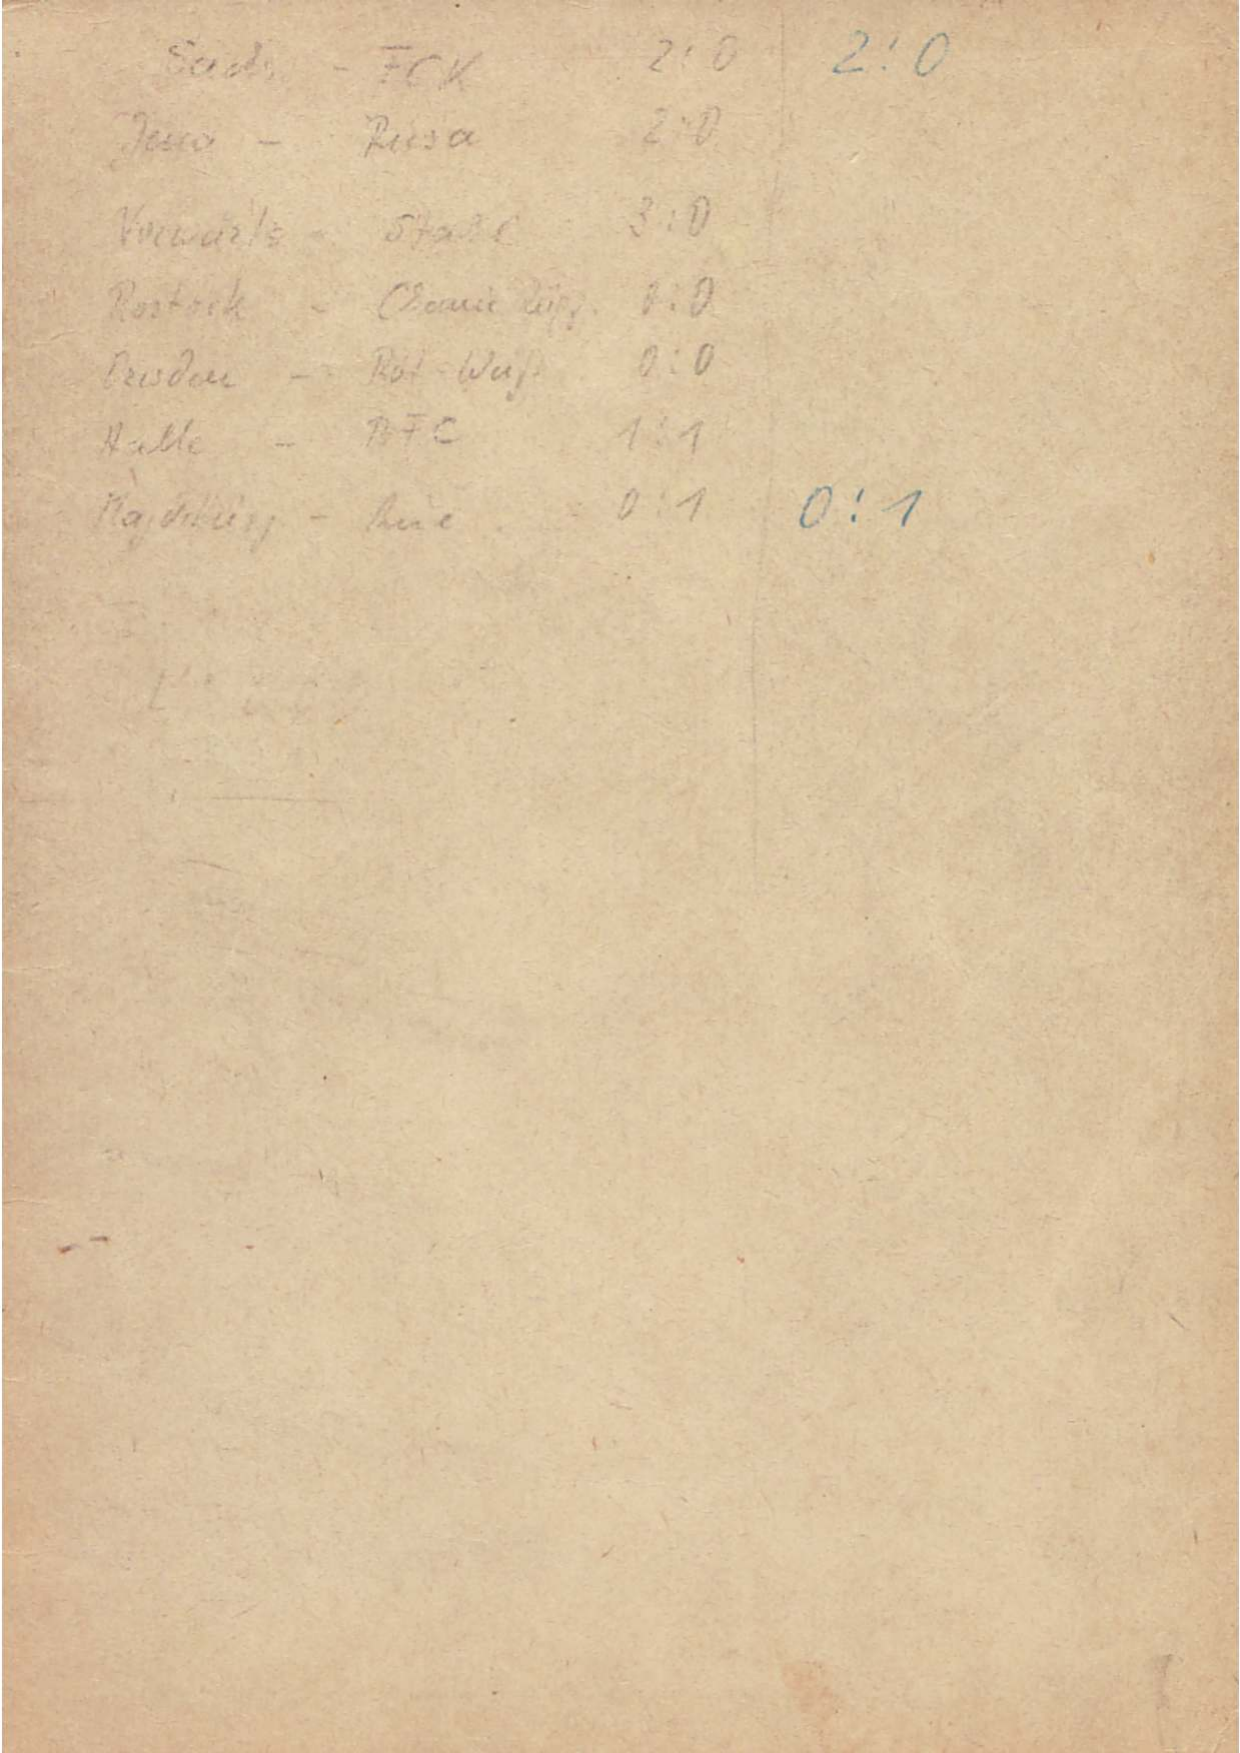 Sachs. - FCK 2:0 2:0
Jena - Riesa 2:0
Vorwärts - Stahl 3:0
Rostock - Chemie Lpzg. 0:0
Dresden - Rot-Weiß 0:0
Halle - BFC 1:1
Magdeburg - Aue 0:1 0:1